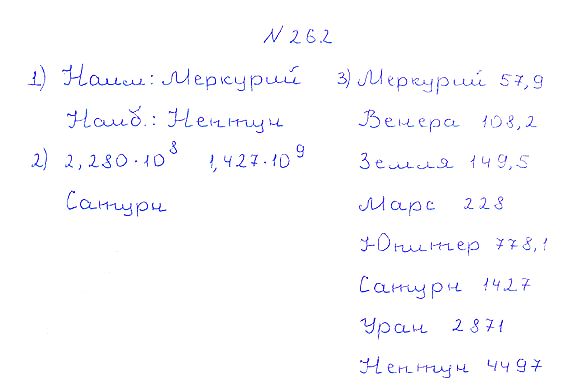 N 262
1) Наим: Меркурий
Наиб.: Нептун
2) 2,280·10⁸ 1,427·10⁹
Сатурн
3) Меркурий 57,9
Венера 108,2
Земля 149,5
Марс 228
Юпитер 778,1
Сатурн 1427
Уран 2871
Нептун 4497